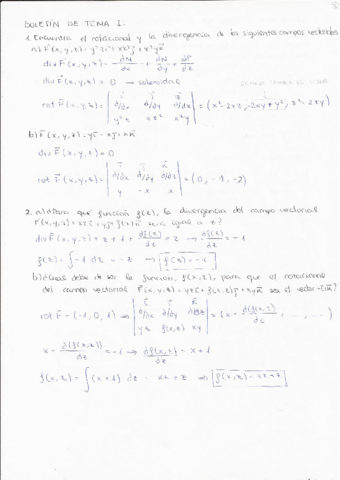 BOLETÍN DE TEMA 1:
1. Encuentra el rotacional y la divergencia de los siguientes campos vectoriales
a) F(x, y, z) = y²z i + xz² j + x²y k
div F(x, y, z) = dN/dx + dN/dy + dP/dz
div F(x, y, z) = 0 → solenoidal
rot F(x, y, z) = | i j k ; d/dx d/dy d/dz ; y²z xz² x²y | = (x² - 2xz, -2xy + y², z² - 2zy)
b) F(x, y, z) = y i - x j + x k
div F(x, y, z) = 0
rot F(x, y, z) = | i j k ; d/dx d/dy d/dz ; y -x x | = (0, -1, -2)
2. a) ¿Para qué función f(z), la divergencia del campo vectorial
F(x, y, z) = xz i + y j + f(z) k será igual a z?
div F(x, y, z) = z + 1 + df(z)/dz = z → df(z)/dz = -1
f(z) = ∫ -1 dz = -z ⇒ f(z) = -z
b) ¿Cuál debe de ser la función, f(x, z), para que el rotacional
del campo vectorial F(x, y, z) = yz i + f(x, z) j + xy k sea el vector
rot F = (-1, 0, 1) ⇒ | i j k ; d/dx d/dy d/dz ; yz f(x,z) xy | = (x - d(f(x, z))/dz, ..., ...)
x - d(f(x, z))/dz = -1 → df(x, z)/dz = x + 1
f(x, z) = ∫ (x + 1) dz = xz + z ⇒ f(x, z) = xz + z